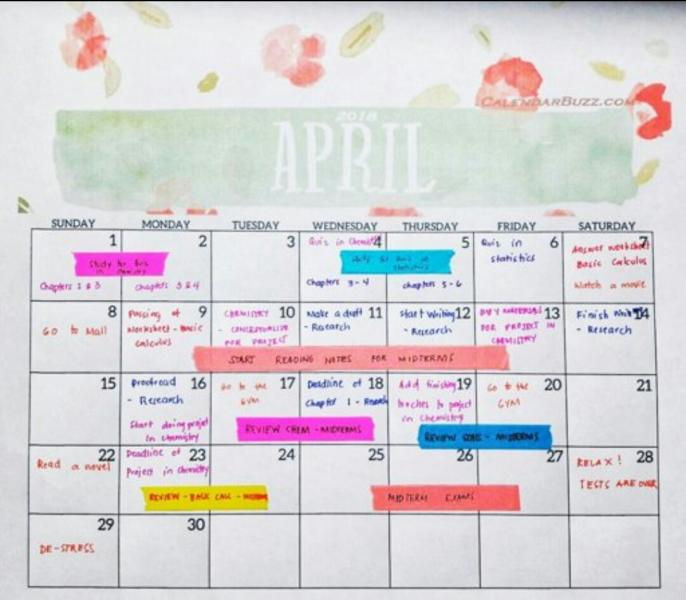 CALENDARBUZZ.COM
2018
APRIL
SUNDAY MONDAY TUESDAY WEDNESDAY THURSDAY FRIDAY SATURDAY
1 2 3 4 5 6 7
Study for Quiz
in
Chapters 1 & 3
chapters 3 & 4
Quiz in
for Quiz in
statistics
Chapters 3-4
chapters 5-6
Quiz in
statistics
Answer worksheet
Basic Calculus
Watch a movie
8 9 10 11 12 13 14
Go to Mall
Passing of
Worksheet - Basic
Calculus
CHEMISTRY
- CONCEPTUALIZE
FOR PROJECT
Make a draft
- Research
Start Writing
- Research
BUY MATERIALS
FOR PROJECT IN
CHEMISTRY
Finish
- Research
START READING NOTES FOR MIDTERMS
15 16 17 18 19 20 21
Proofread
- Research
Start doing projet
in chemistry
Go to the
GYM
Deadline of
Chapter 1 - Research
Add finishing
touches to project
in Chemistry
Go to the
GYM
REVIEW CHEM - MIDTERMS
REVIEW - MIDTERMS
22 23 24 25 26 27 28
Read a novel
Deadline of
Project in Chemistry
REVIEW - BASIC CALC -
MIDTERM EXAMS
RELAX!
TESTS ARE OVER
29 30
DE-STRESS